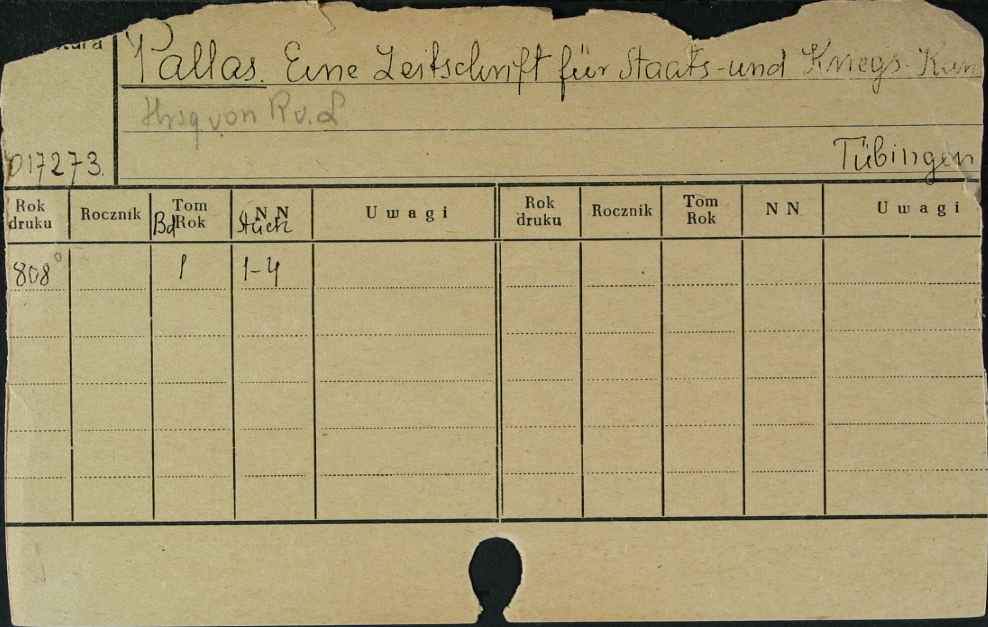 Pallas. Eine Zeitschrift für Staats- und Kriegs-Kun
Hrsg von R v. L
017273.
Tübingen
Rok druku Rocznik Tom Rok Bd N N Stück Uwagi Rok druku Rocznik Tom Rok N N Uwagi
808° 1 1-4